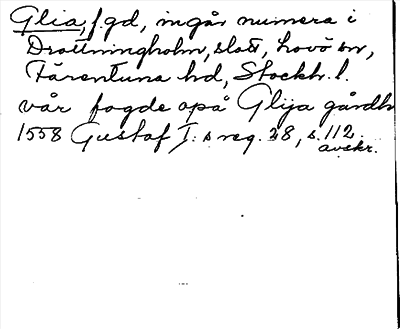 Glia, f.gd, ingår numera i
Drottningholm, slott, Lovö sn,
Färentuna hd, Stockh. l.
vår fogde opå Glija gårdh
1558 Gustaf I:s reg. 28, s. 112.
avskr.